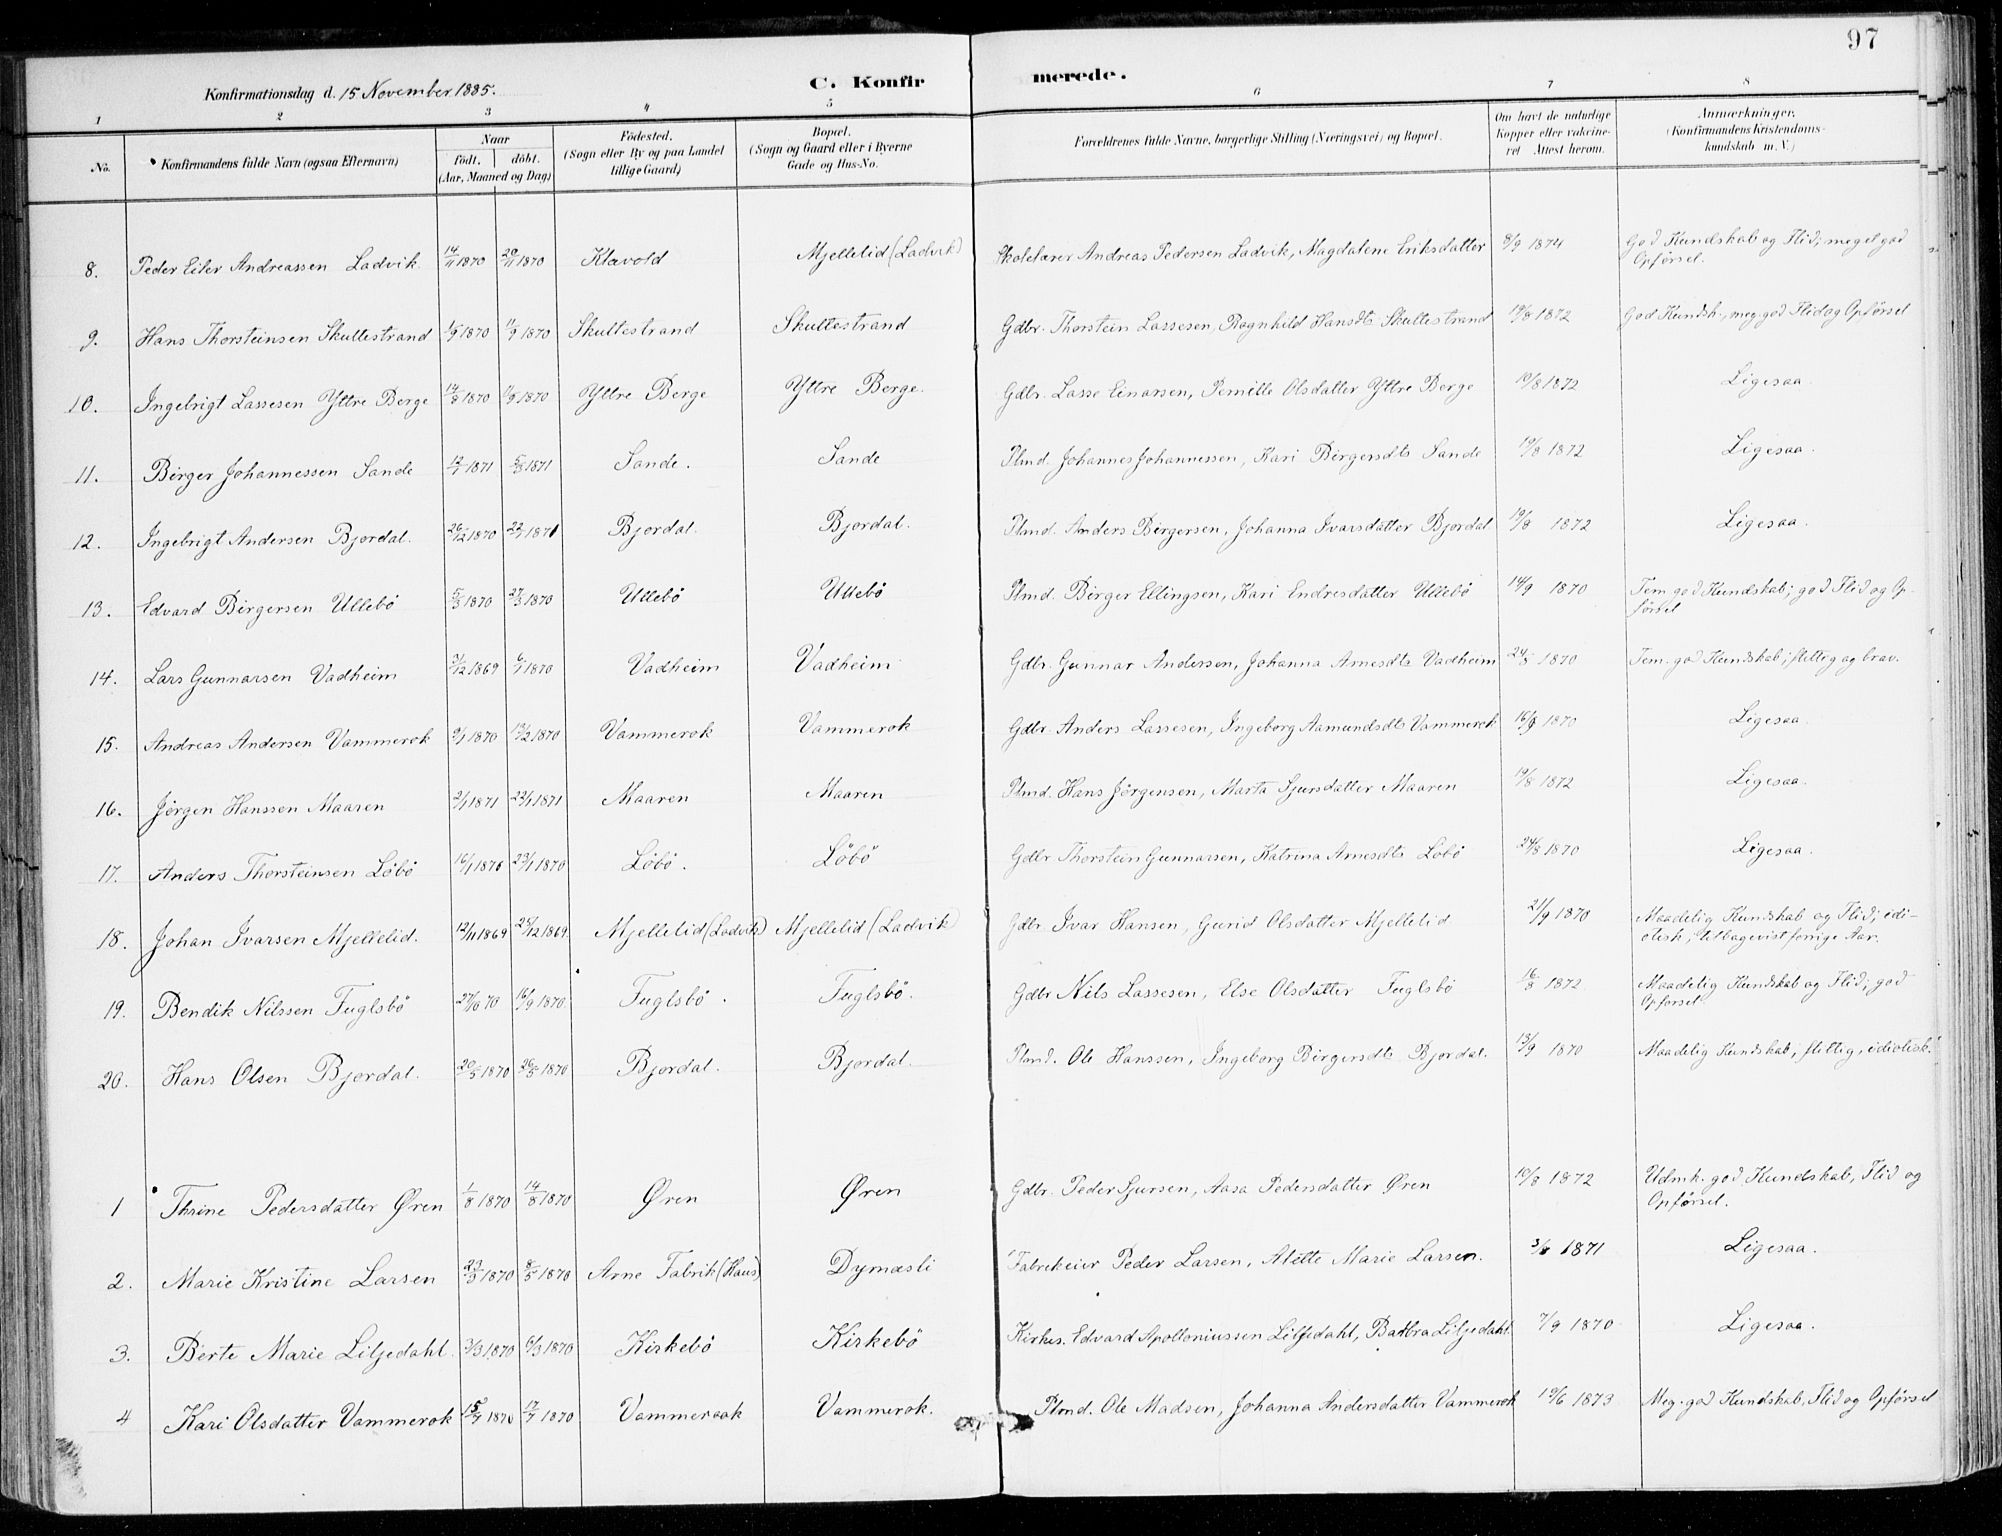 97
Konfirmationsdag d. 15 November 1885.
C. Konfirmerede.
1 2 3 4 5 6 7 8
No.
Konfirmandens fulde Navn (ogsaa Efternavn)
Naar
födt. döbt.
(Aar, Maaned og Dag)
Födested.
(Sogn eller By og paa Landet
tillige Gaard)
Bopæl.
(Sogn og Gaard eller i Byerne
Gade og Hus-No.
Forældrenes fulde Navne, borgerlige Stilling (Næringsvei) og Bopæl.
Om havt de naturlige
Kopper eller vakcine-
ret Attest herom.
Anmærkninger.
(Konfirmandens Kristendoms-
kundskab m. V.)
8. Peder Eiler Andreassen Ladvik. 14/11 1870 20/11 1870 Klævold Mjellelid (Ladvik) Skolelærer Andreas Pedersen Ladvik, Magdalene Eriksdatter 8/9 1874 God Kundskab og Flid; meget god
Opførsel.
9. Hans Thorsteinsen Skullestrand 1/9 1870 11/9 1870 Skullestrand Skullestrand Gdbr. Thorstein Lassesen, Ragnhild Hansdt. Skullestrand 19/8 1872 God Kundsk., meg. god Flid og Opførsel
10. Ingebrigt Lassesen Yttre Berge 14/8 1870 11/9 1870 Yttre Berge Yttre Berge. Gdbr. Lasse Einarsen, Pernille Olsdatter Yttre Berge 19/8 1872 Ligesaa.
11. Birger Johannessen Sande 12/7 1871 5/8 1871 Sande. Sande Plmd. Johannes Johannessen, Kari Birgersdt. Sande 19/8 1872 Ligesaa.
12. Ingebrigt Andersen Bjordal. 26/12 1870 22/1 1871 Bjordal. Bjordal. Plmd. Anders Birgersen, Johanna Ivarsdatter Bjordal 19/8 1872 Ligesaa.
13. Edvard Birgersen Ullebö 5/3 1870 27/3 1870 Ullebö Ullebö Plmd. Birger Ellingsen, Kari Endresdatter Ullebö 14/9 1870 Tem. god Kundskab; god Flid og Op-
førsel
14. Lars Gunnarsen Vadheim 3/12 1869 6/1 1870 Vadheim Vadheim Gdbr. Gunnar Andersen, Johanna Arnesdt. Vadheim 24/8 1870 Tem. god Kundskab; flittig og brav.
15. Andreas Andersen Vammerok 9/1 1870 13/2 1870 Vammerok Vammerok Gdbr. Anders Lassesen, Ingeborg Aamundsdt. Vammerok 16/9 1870 Ligesaa.
16. Jørgen Hanssen Maaren 2/1 1871 22/1 1871 Maaren Maaren Plmd. Hans Jörgensen, Marta Sjursdatter Maaren 19/8 1872 Ligesaa.
17. Anders Thorsteinsen Löbö 16/1 1870 23/1 1870 Löbö. Löbö Gdbr. Thorstein Gunnarsen, Katrina Arnesdt. Löbö 24/8 1870 Ligesaa.
18. Johan Ivarsen Mjellelid. 12/11 1869 25/12 1869 Mjellelid (Ladvik) Mjellelid (Ladvik) Gdbr. Ivar Hansen, Gurid Olsdatter Mjellelid 21/9 1870 Maadelig Kundskab og Flid; idi-
otisk; tilbagevist forrige Aar.
19. Bendik Nilssen Fuglsbö 27/8 70 16/9 1870 Fuglsbö. Fuglsbö. Gdbr. Nils Lassesen, Else Olsdatter Fuglsbö 16/8 1872 Maadelig Kundskab og Flid; god
Opførsel.
20. Hans Olsen Bjordal. 20/5 1870 26/5 1870 Bjordal. Bjordal. Plmd. Ole Hanssen, Ingeborg Birgersdt. Bjordal. 13/9 1870 Maadelig Kundskab; flittig, idiotisk.
1 Thrine Pedersdatter Øren 1/8 1870 14/8 1870 Øren Øren Gdbr. Peder Sjursen, Aasa Pedersdatter Øren 19/8 1872 Udmk. god Kundskab, Flid og
Opførsel.
2. Marie Kristine Larsen 23/3 1870 8/5 1870 Arne Fabrik (Haus) Dymæsli Fabrikeier Peder Larsen, Alette Marie Larsen. 1871 Ligesaa.
3. Berte Marie Liljedahl. 3/3 1870 6/3 1870 Kirkebö Kirkebö Kirkes. Edvard Apolloniussen Liljedahl, Barbra Liljedahl. 7/9 1870 Ligesaa.
4 Kari Olsdatter Vammerok 15/7 1870 17/7 1870 Vammeraak Vammerok. Plmd. Ole Madsen, Johanna Andersdatter Vammerok 19/6 1873 Meg. god Kundskab, Flid og Opførsel